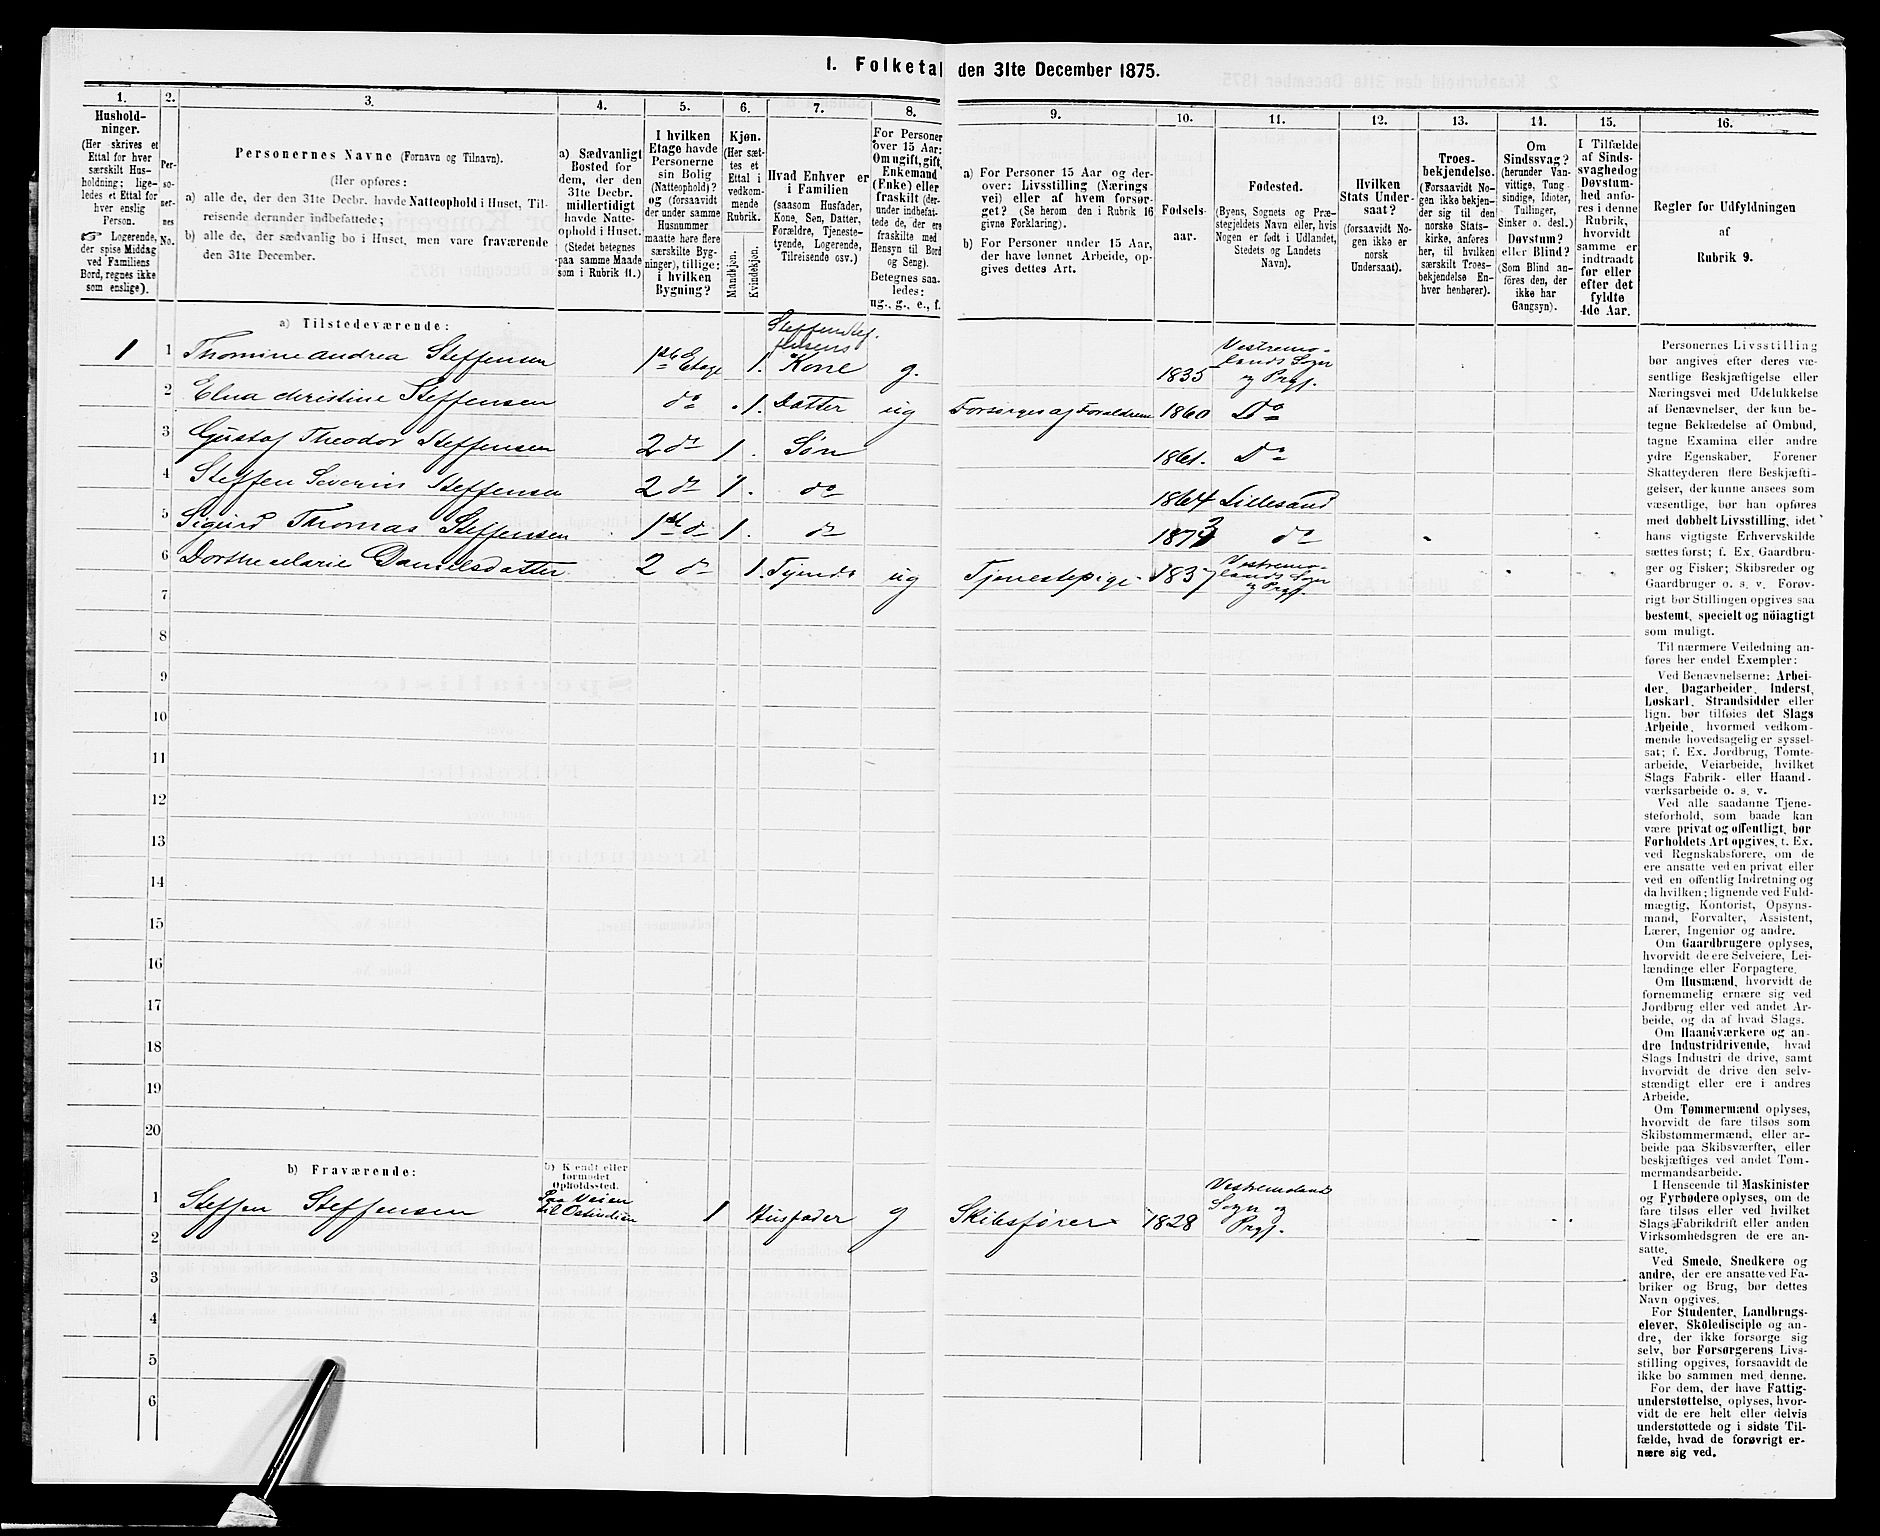 1. Folketal den 31te December 1875.
1.
Hushold-
ninger.
(Her skrives et
Ettal for hver
særskilt Hus-
holdning; lige-
ledes et Ettal for
hver enslig
Person.
Logerende,
der spise Middag
ved Familiens
Bord, regnes ikke
som enslige).
2.
Per-
so-
ner-
nes
No.
3.
Personernes Navne (Fornavn og Tilnavn).
(Her opføres:
a) alle de, der den 31te Decbr. havde Natteophold i Huset, Til-
reisende derunder indbefattede;
b) alle de, der sædvanlig bo i Huset, men vare fraværende
den 31te December.
4.
a) Sædvanligt
Bosted for
dem, der den
31te Decbr.
midlertidigt
havde Natte-
ophold i Huset.
(Stedet betegnes
paa samme Maade
som i Rubrik 11.)
5.
I hvilken
Etage havde
Personerne
sin Bolig
(Natteophold)?
og (forsaavidt
der under samme
Husnummer
maatte høre flere
særskilte Byg-
ninger), tillige:
i hvilken
Bygning?
6.
Kjøn.
(Her sæt-
tes et
Ettal i
vedkom-
mende
Rubrik.
Mandkjøn.
Kvindekjøn.
7.
Hvad Enhver er
i Familien
(saasom Husfader,
Kone, Søn, Datter,
Forældre, Tjeneste-
tyende, Logerende,
Tilreisende osv.)
8.
For Personer
over 15 Aar:
Om ugift, gift,
Enkemand
(Enke) eller
fraskilt (der-
under indbefat-
tede de, der ere
fraskilte med
Hensyn til Bord
og Seng).
Betegnes saa-
ledes:
ug., g., e., f.
9.
a) For Personer 15 Aar og der-
over: Livsstilling (Nærings
vei) eller af hvem forsør-
get? (Se herom den i Rubrik 16
givne Forklaring).
b) For Personer under 15 Aar,
der have lønnet Arbeide, op-
gives dettes Art.
10.
Fødsels-
aar.
11.
Fødested.
(Byens, Sognets og Præ-
stegjeldets Navn eller, hvis
Nogen er født i Udlandet,
Stedets og Landets
Navn).
12.
Hvilken
Stats Under-
saat?
(forsaavidt No-
gen ikke er
norsk
Undersaat).
13.
Troes-
bekjendelse.
(Forsaavidt No-
gen ikke bekjen-
der sig til den
norske Stats-
kirke, anføres
her, til hvilken
særskilt Troes-
bekjendelse En-
hver henhører).
14.
Om
Sindssvag?
(herunder Van-
vittige, Tung-
sindige, Idioter,
Tullinger,
Sinker o. desl.)
Døvstum?
eller Blind?
(Som Blind an-
føres den, der
ikke har
Gangsyn).
15.
I Tilfælde
af Sinds-
svaghed og
Døvstum-
hed anfø-
res i denne
Rubrik,
hvorvidt
samme er
indtraadt
før eller
efter det
fyldte
4de Aar.
16.
Regler for Udfyldningen
af
Rubrik 9.
a) Tilstedeværende:
1 1 Thomine Andrea Steffensen 1ste Etage 1. Steffen Stef-
fensens
Kone g. 1835 Vestremo-
lands Sogn
og Prgj.
2 Elna Christine Steffensen do 1. Datter ug Forsørges af Forældrene 1860 Do
3 Gustaf Theodor Steffensen 2 do 1 Søn 1861. Do
4 Steffen Severin Steffensen 2 do 1. do 1864 Lillesand
5 Sigurd Thomas Steffensen 1st do 1. do 1873 do
6 Dorthe Marie Danielsdatter 2 do 1. Tjende ug Tjenestepige 1837 Vestremo-
lands Sogn
og Prgj.
7
8
9
10
11
12
13
14
15
16
17
18
19
20
b) Fraværende:
b) Kjendt eller
formodet
Opholdssted.
1 Steffen Steffensen Paa Veien
til Ostindien 1 Husfader g Skibsfører 1828 Vestremoland
Sogn og
Prgj.
2
3
4
5
6
Personernes Livsstilling
bør angives efter deres væ-
sentlige Beskjæftigelse eller
Næringsvei med Udelukkelse
af Benævnelser, der kun be-
tegne Beklædelse af Ombud,
tagne Examina eller andre
ydre Egenskaber. Forener
Skatteyderen flere Beskjæfti-
gelser, der kunne ansees som
væsentlige, bør han opføres
med dobbelt Livsstilling, idet
hans vigtigste Erhvervskilde
sættes først; f. Ex. Gaardbru-
ger og Fisker; Skibsreder og
Gaardbruger o. s. v. Forøv-
rigt bør Stillingen opgives saa
bestemt, specielt og nöiagtigt
som muligt.
Til nærmere Veiledning an-
føres her endel Exempler:
Ved Benævnelserne: Arbei-
der, Dagarbeider, Inderst,
Løskarl, Strandsidder eller
lign. bør tilføies det Slags
Arbeide, hvormed vedkom-
mende hovedsagelig er syssel-
sat; f. Ex. Jordbrug, Tomte-
arbeide, Veiarbeide, hvilket
Slags Fabrik- eller Haand-
værksarbeide o. s. v.
Ved alle saadanne Tjene-
steforhold, som baade kan
være privat og offentligt, bør
Forholdets Art opgives, t. Ex.
ved Regnskabsførere, om de
ere ansatte ved en privat eller
ved en offentlig Indretning og
da hvilken; lignende ved Fuld-
mægtig, Kontorist, Opsyns-
mand, Forvalter, Assistent,
Lærer, Ingeniør og andre.
Om Gaardbrugere oplyses,
hvorvidt de ere Selveiere, Lei-
lændinge eller Forpagtere.
Om Husmænd, hvorvidt de
fornemmelig ernære sig ved
Jordbrug eller ved andet Ar-
beide, og da af hvad Slags.
Om Haandværkere og an-
dre Industridrivende, hvad
Slags Industri de drive, samt
hvorvidt de drive den selv-
stændigt eller ere i andres
Arbeide.
Om Tømmermænd oplyses,
hvorvidt de fare tilsøs som
Skibstømmermænd, eller ar-
beide paa Skibsværfter, eller
beskjæftiges ved andet Tøm-
mermandsarbeide.
I Henseende til Maskinister
og Fyrbødere oplyses, om de
fare tilsøs eller ved hvilket
Slags Fabrikdrift eller anden
Virksomhedsgren de ere an-
satte.
Ved Smede, Snedkere og
andre, der ere ansatte ved Fa-
briker og Brug, bør dettes
Navn opgives.
For Studenter, Landbrugs-
elever, Skoledisciple og an-
dre, der ikke forsørge sig
selv, bør Forsørgerens Livs-
stilling opgives, forsaavidt de
ikke bo sammen med denne.
For dem, der have Fattig-
understøttelse, oplyses, hvor-
vidt de ere helt eller delvis
understøttede og i sidste Til-
fælde, hvad de forøvrigt er-
nære sig ved.